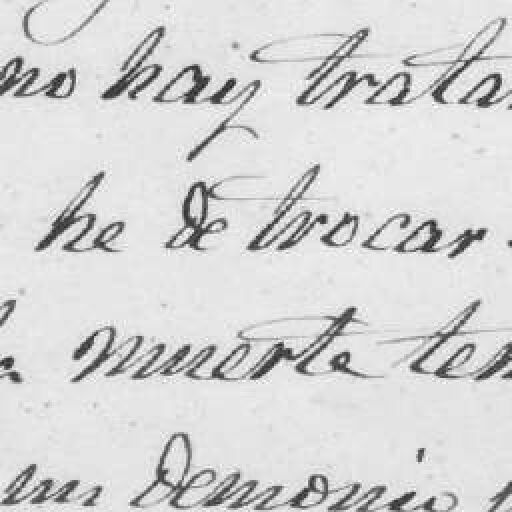 no hay tratar
he de trocar
muerte ten
un demonio